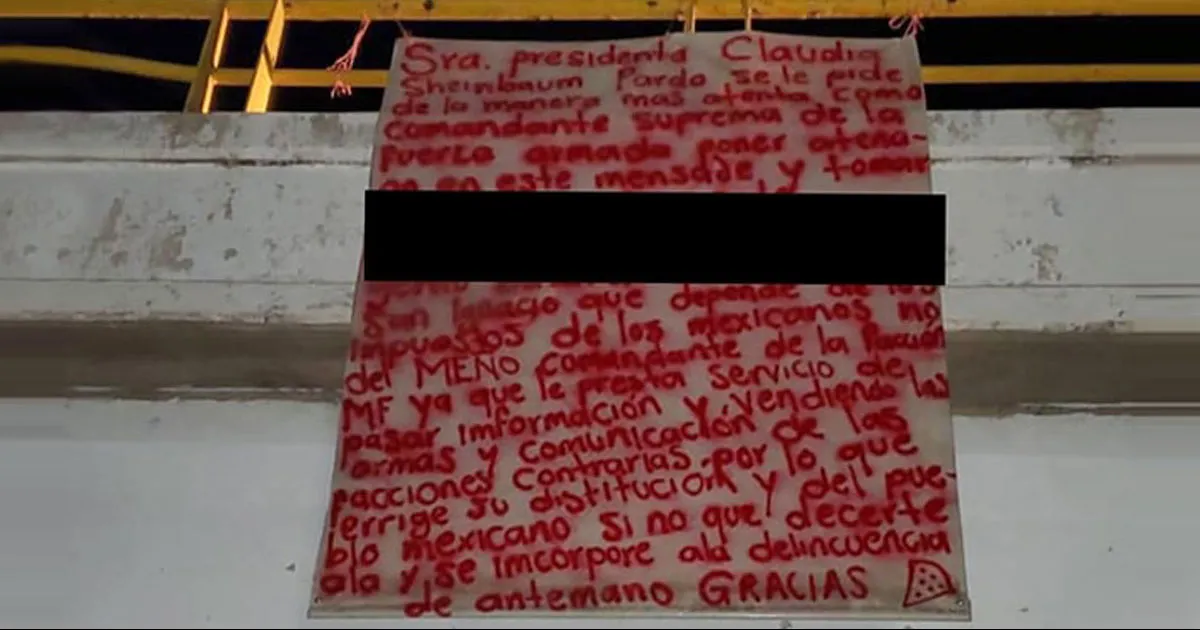 Sra. presidenta Claudia
Sheinbaum Pardo se le pide
de la manera mas atenta como
comandante suprema de la
fuerza armada poner atenci-
on en este mensaje y tomar
que depende de los
impuestos de los mexicanos no
del MENO comandante de la faccion
MF ya que le presta servicio de
pasar imformación y vendiendo las
armas y comunicación de las
facciones contrarias por lo que
ferrige su distitución y del pue-
blo mexicano si no que decerte
ala y se imcorpore ala delincuencia
de antemano GRACIAS